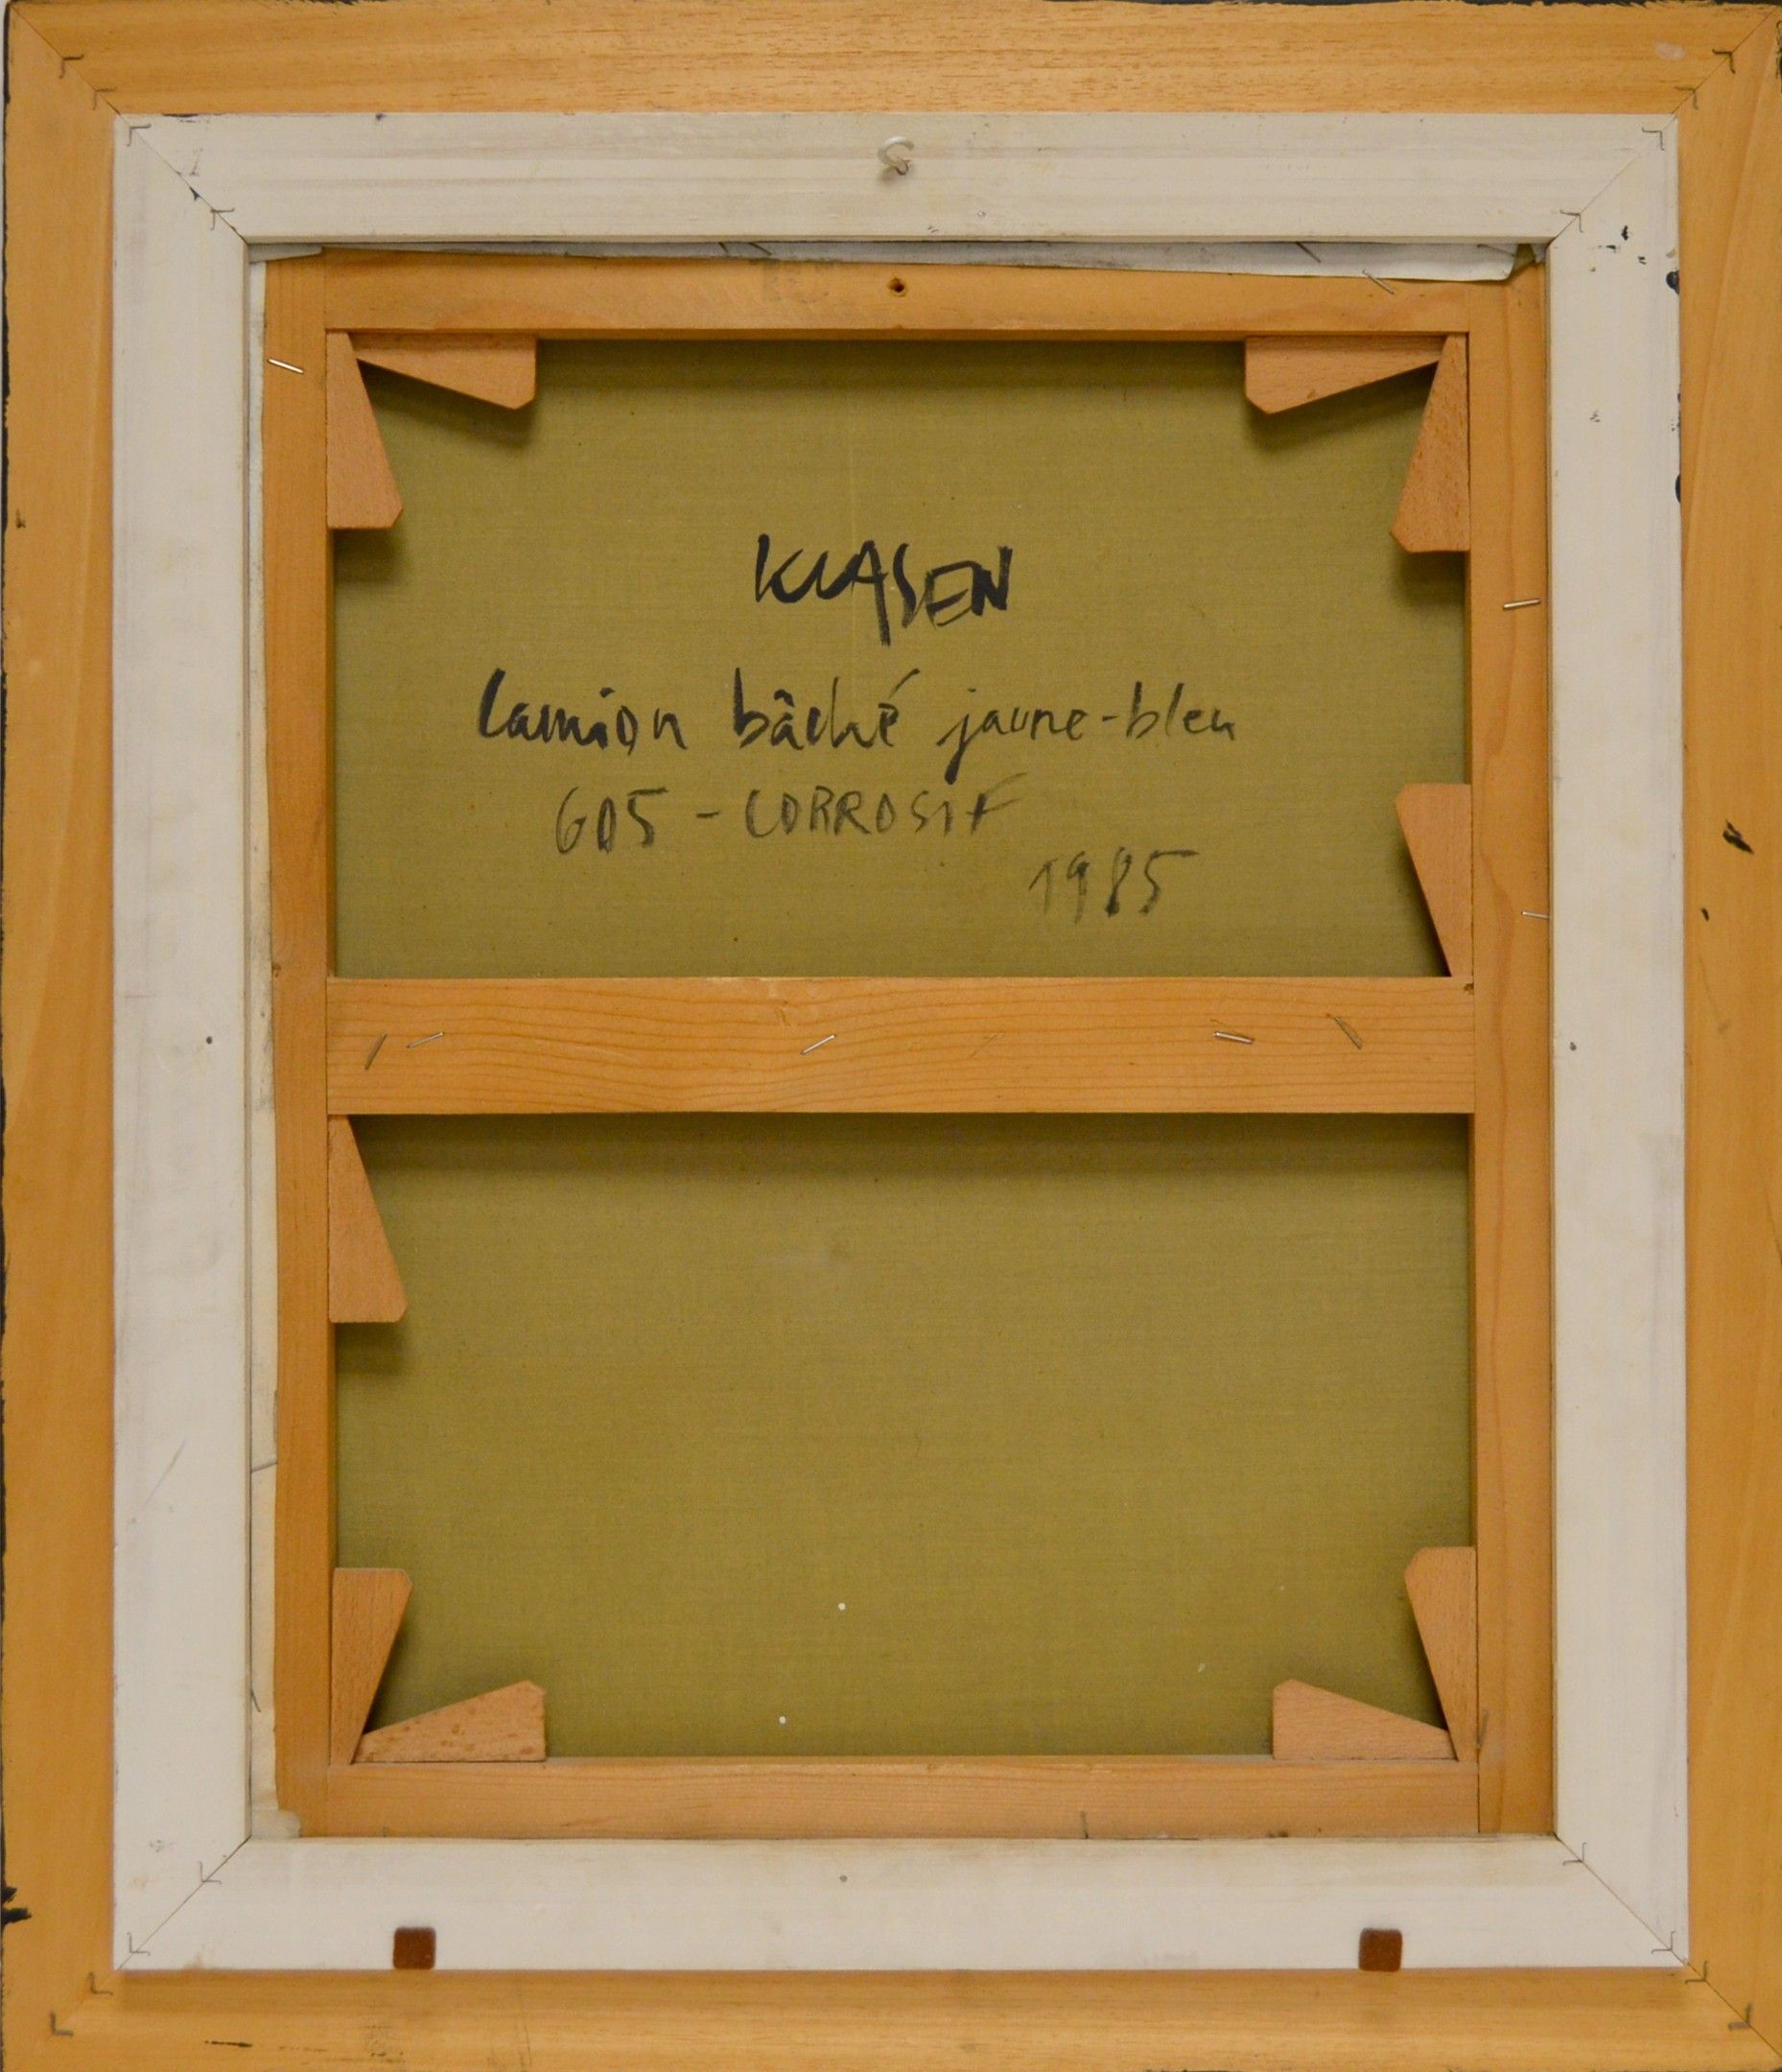 KLASEN
Camion bâché jaune-bleu
605 - CORROSIF
1985